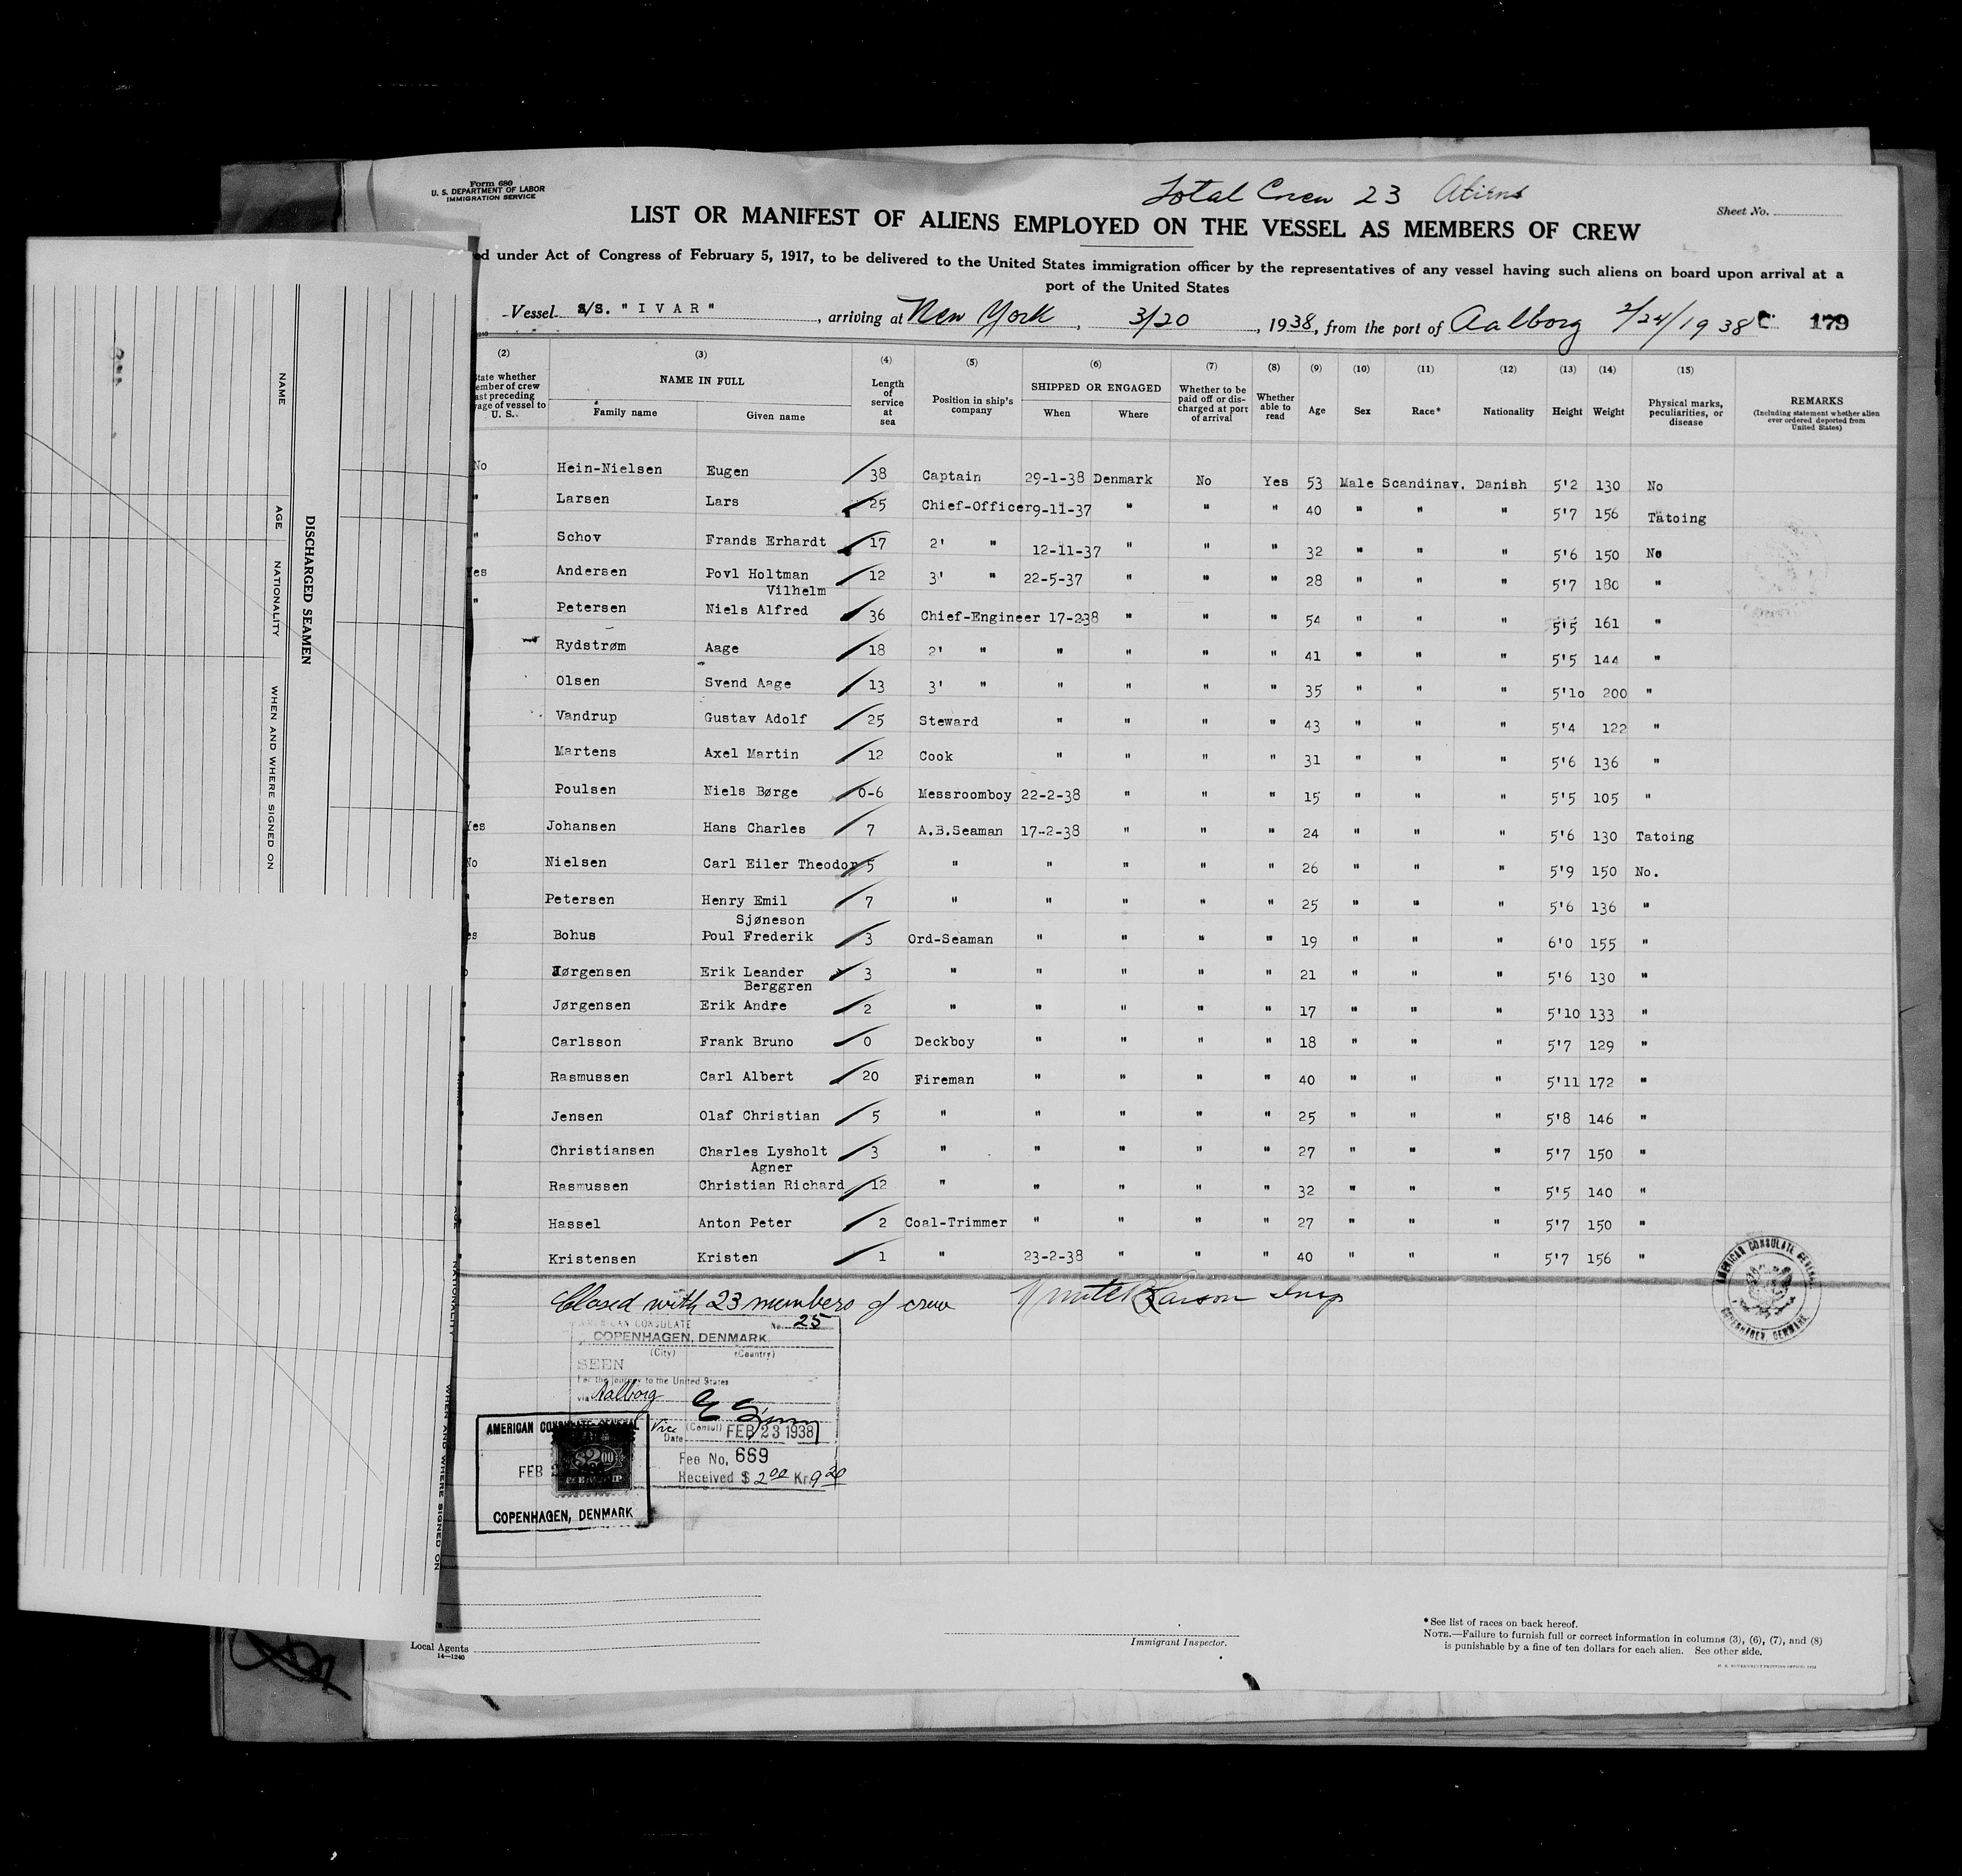 Form 680
U. S. DEPARTMENT OF LABOR
IMMIGRATION SERVICE
Total Crew 23 Aliens
Sheet No.
LIST OR MANIFEST OF ALIENS EMPLOYED ON THE VESSEL AS MEMBERS OF CREW
ed under Act of Congress of February 5, 1917, to be delivered to the United States immigration officer by the representatives of any vessel having such aliens on board upon arrival at a
port of the United States
Vessel S/S. "IVAR", arriving at New York, 3/20, 1938, from the port of Aalborg 2/24/1938 C 179
(2) (3) (4) (5) (6) (7) (8) (9) (10) (11) (12) (13) (14) (15)
State whether member of crew last preceding voyage of vessel to U. S. NAME IN FULL Family name Given name Length of service at sea Position in ship's company SHIPPED OR ENGAGED When Where Whether to be paid off or discharged at port of arrival Whether able to read Age Sex Race* Nationality Height Weight Physical marks, peculiarities, or disease REMARKS (Including statement whether alien ever ordered deported from United States)
No Hein-Nielsen Eugen 38 Captain 29-1-38 Denmark No Yes 53 Male Scandinav. Danish 5'2 130 No
" Larsen Lars 25 Chief-Officer 9-11-37 " " " 40 " " " 5'7 156 Tatoing
" Schov Frands Erhardt 17 2' " 12-11-37 " " " 32 " " " 5'6 150 No
Yes Andersen Povl Holtman Vilhelm 12 3' " 22-5-37 " " " 28 " " " 5'7 180 "
" Petersen Niels Alfred 36 Chief-Engineer 17-238 " " " 54 " " " 5'5 161 "
Rydstrøm Aage 18 2' " " " " " 41 " " " 5'5 144 "
Olsen Svend Aage 13 3' " " " " " 35 " " " 5'10 200 "
Vandrup Gustav Adolf 25 Steward " " " " 43 " " " 5'4 122 "
Martens Axel Martin 12 Cook " " " " 31 " " " 5'6 136 "
Poulsen Niels Børge 0-6 Messroomboy 22-2-38 " " " 15 " " " 5'5 105 "
Yes Johansen Hans Charles 7 A.B.Seaman 17-2-38 " " " 24 " " " 5'6 130 Tatoing
No Nielsen Carl Eiler Theodor 5 " " " " " 26 " " " 5'9 150 No.
" Petersen Henry Emil Sjøneson 7 " " " " " 25 " " " 5'6 136 "
es Bohus Poul Frederik 3 Ord-Seaman " " " " 19 " " " 6'0 155 "
Jørgensen Erik Leander Berggren 3 " " " " " 21 " " " 5'6 130 "
" Jørgensen Erik Andre 2 " " " " " 17 " " " 5'10 133 "
" Carlsson Frank Bruno 0 Deckboy " " " " 18 " " " 5'7 129 "
" Rasmussen Carl Albert 20 Fireman " " " " 40 " " " 5'11 172 "
" Jensen Olaf Christian 5 " " " " " 25 " " " 5'8 146 "
" Christiansen Charles Lysholt Agner 3 " " " " " 27 " " " 5'7 150 "
" Rasmussen Christian Richard 12 " " " " " 32 " " " 5'5 140 "
" Hassel Anton Peter 2 Coal-Trimmer " " " " 27 " " " 5'7 150 "
" Kristensen Kristen 1 " 23-2-38 " " " 40 " " " 5'7 156 "
Closed with 23 members of crew Larson Insp
AMERICAN CONSULATE No. 25
COPENHAGEN, DENMARK
(City) (Country)
SEEN
For the journey to the United States
via Aalborg
Vice (Consul)
Date FEB 23 1938
Fee No. 669
Received $ 2.00 Kr. 9.20
AMERICAN CONSULATE GENERAL
FEB 2
$2.00
COPENHAGEN, DENMARK
AMERICAN CONSULATE GENERAL
Local Agents
14—1240
Immigrant Inspector.
* See list of races on back hereof.
NOTE.—Failure to furnish full or correct information in columns (3), (6), (7), and (8)
is punishable by a fine of ten dollars for each alien. See other side.
DISCHARGED SEAMEN
NAME AGE NATIONALITY WHEN AND WHERE SIGNED ON
NATIONALITY WHEN AND WHERE SIGNED ON